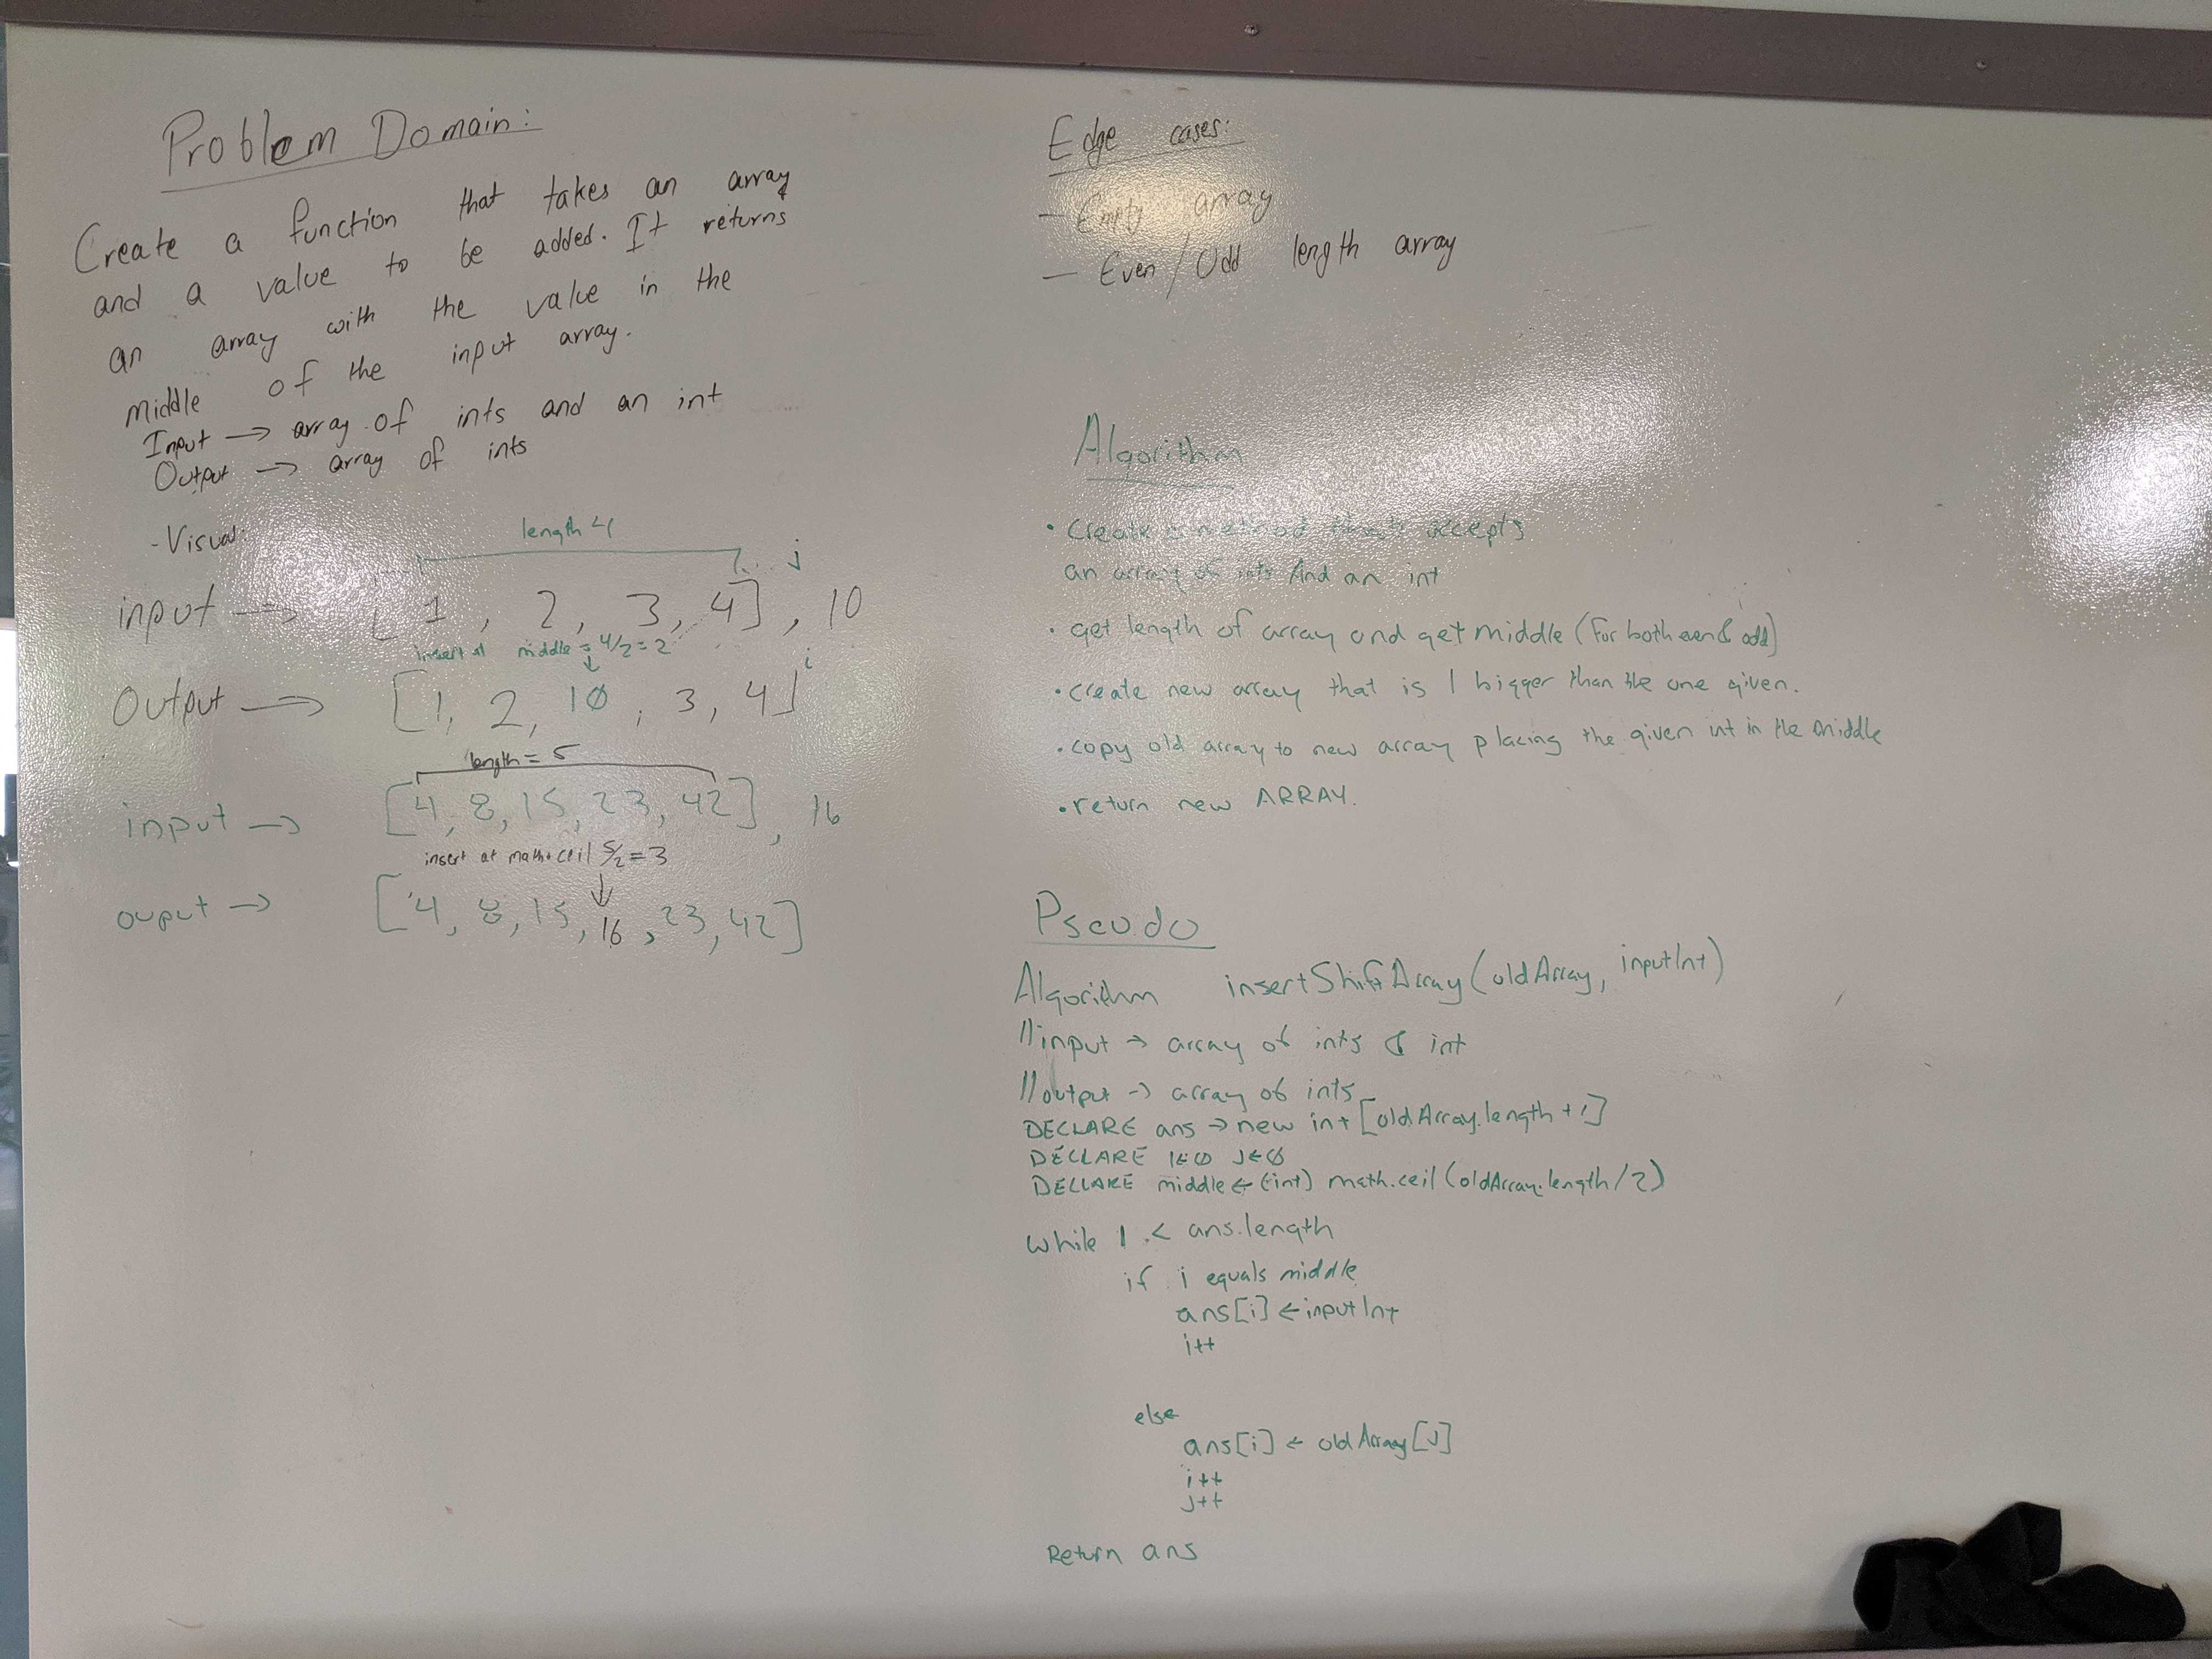 Problem Domain:
Create a function that takes an array
and a value to be added. It returns
an array with the value in the
middle of the input array.
Input → array of ints and an int
Output → array of ints
- Visual:
length 4
j
input → [1, 2, 3, 4], 10
insert at middle = 4/2 = 2
↓
i
Output → [1, 2, 10, 3, 4]
length = 5
input → [4, 8, 15, 23, 42], 16
insert at math.ceil 5/2 = 3
↓
ouput → [4, 8, 15, 16, 23, 42]
Edge cases:
- Empty array
- Even/Odd length array
Algorithm
• Create a method that accepts
an array of ints And an int
• get length of array and get middle (For both even & odd)
• create new array that is 1 bigger than the one given.
• copy old array to new array placing the given int in the middle
• return new ARRAY.
Pseudo
Algorithm insertShiftArray(oldArray, inputInt)
//input → array of ints & int
//output → array of ints
DECLARE ans → new int[oldArray.length + 1]
DECLARE i ← 0 j ← 0
DECLARE middle ← (int) math.ceil(oldArray.length/2)
while i < ans.length
if i equals middle
ans[i] ← inputInt
i++
else
ans[i] ← oldArray[j]
i++
j++
Return ans